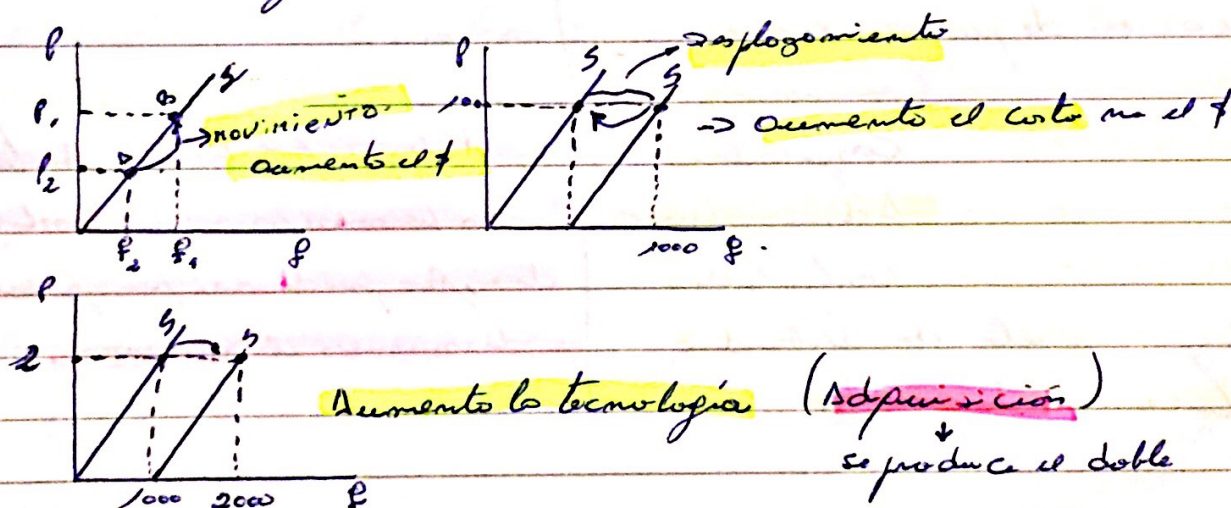 P
S
P₁
B
→ movimiento
aumento el $
P₂
D
q₂ q₁ q
P
→ Desplazamiento
S S
10
→ aumento el costo no el $
1000 q.
P
S S
2
Aumento la tecnología (Adquisición)
↓
se produce el doble
1000 2000 q